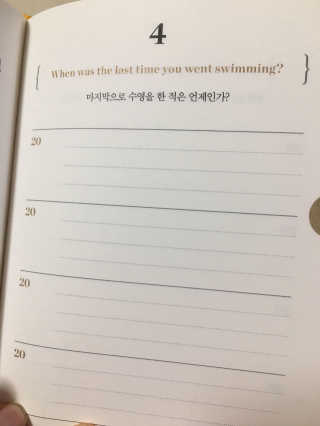 4
When was the last time you went swimming?
마지막으로 수영을 한 적은 언제인가?
20
20
20
20